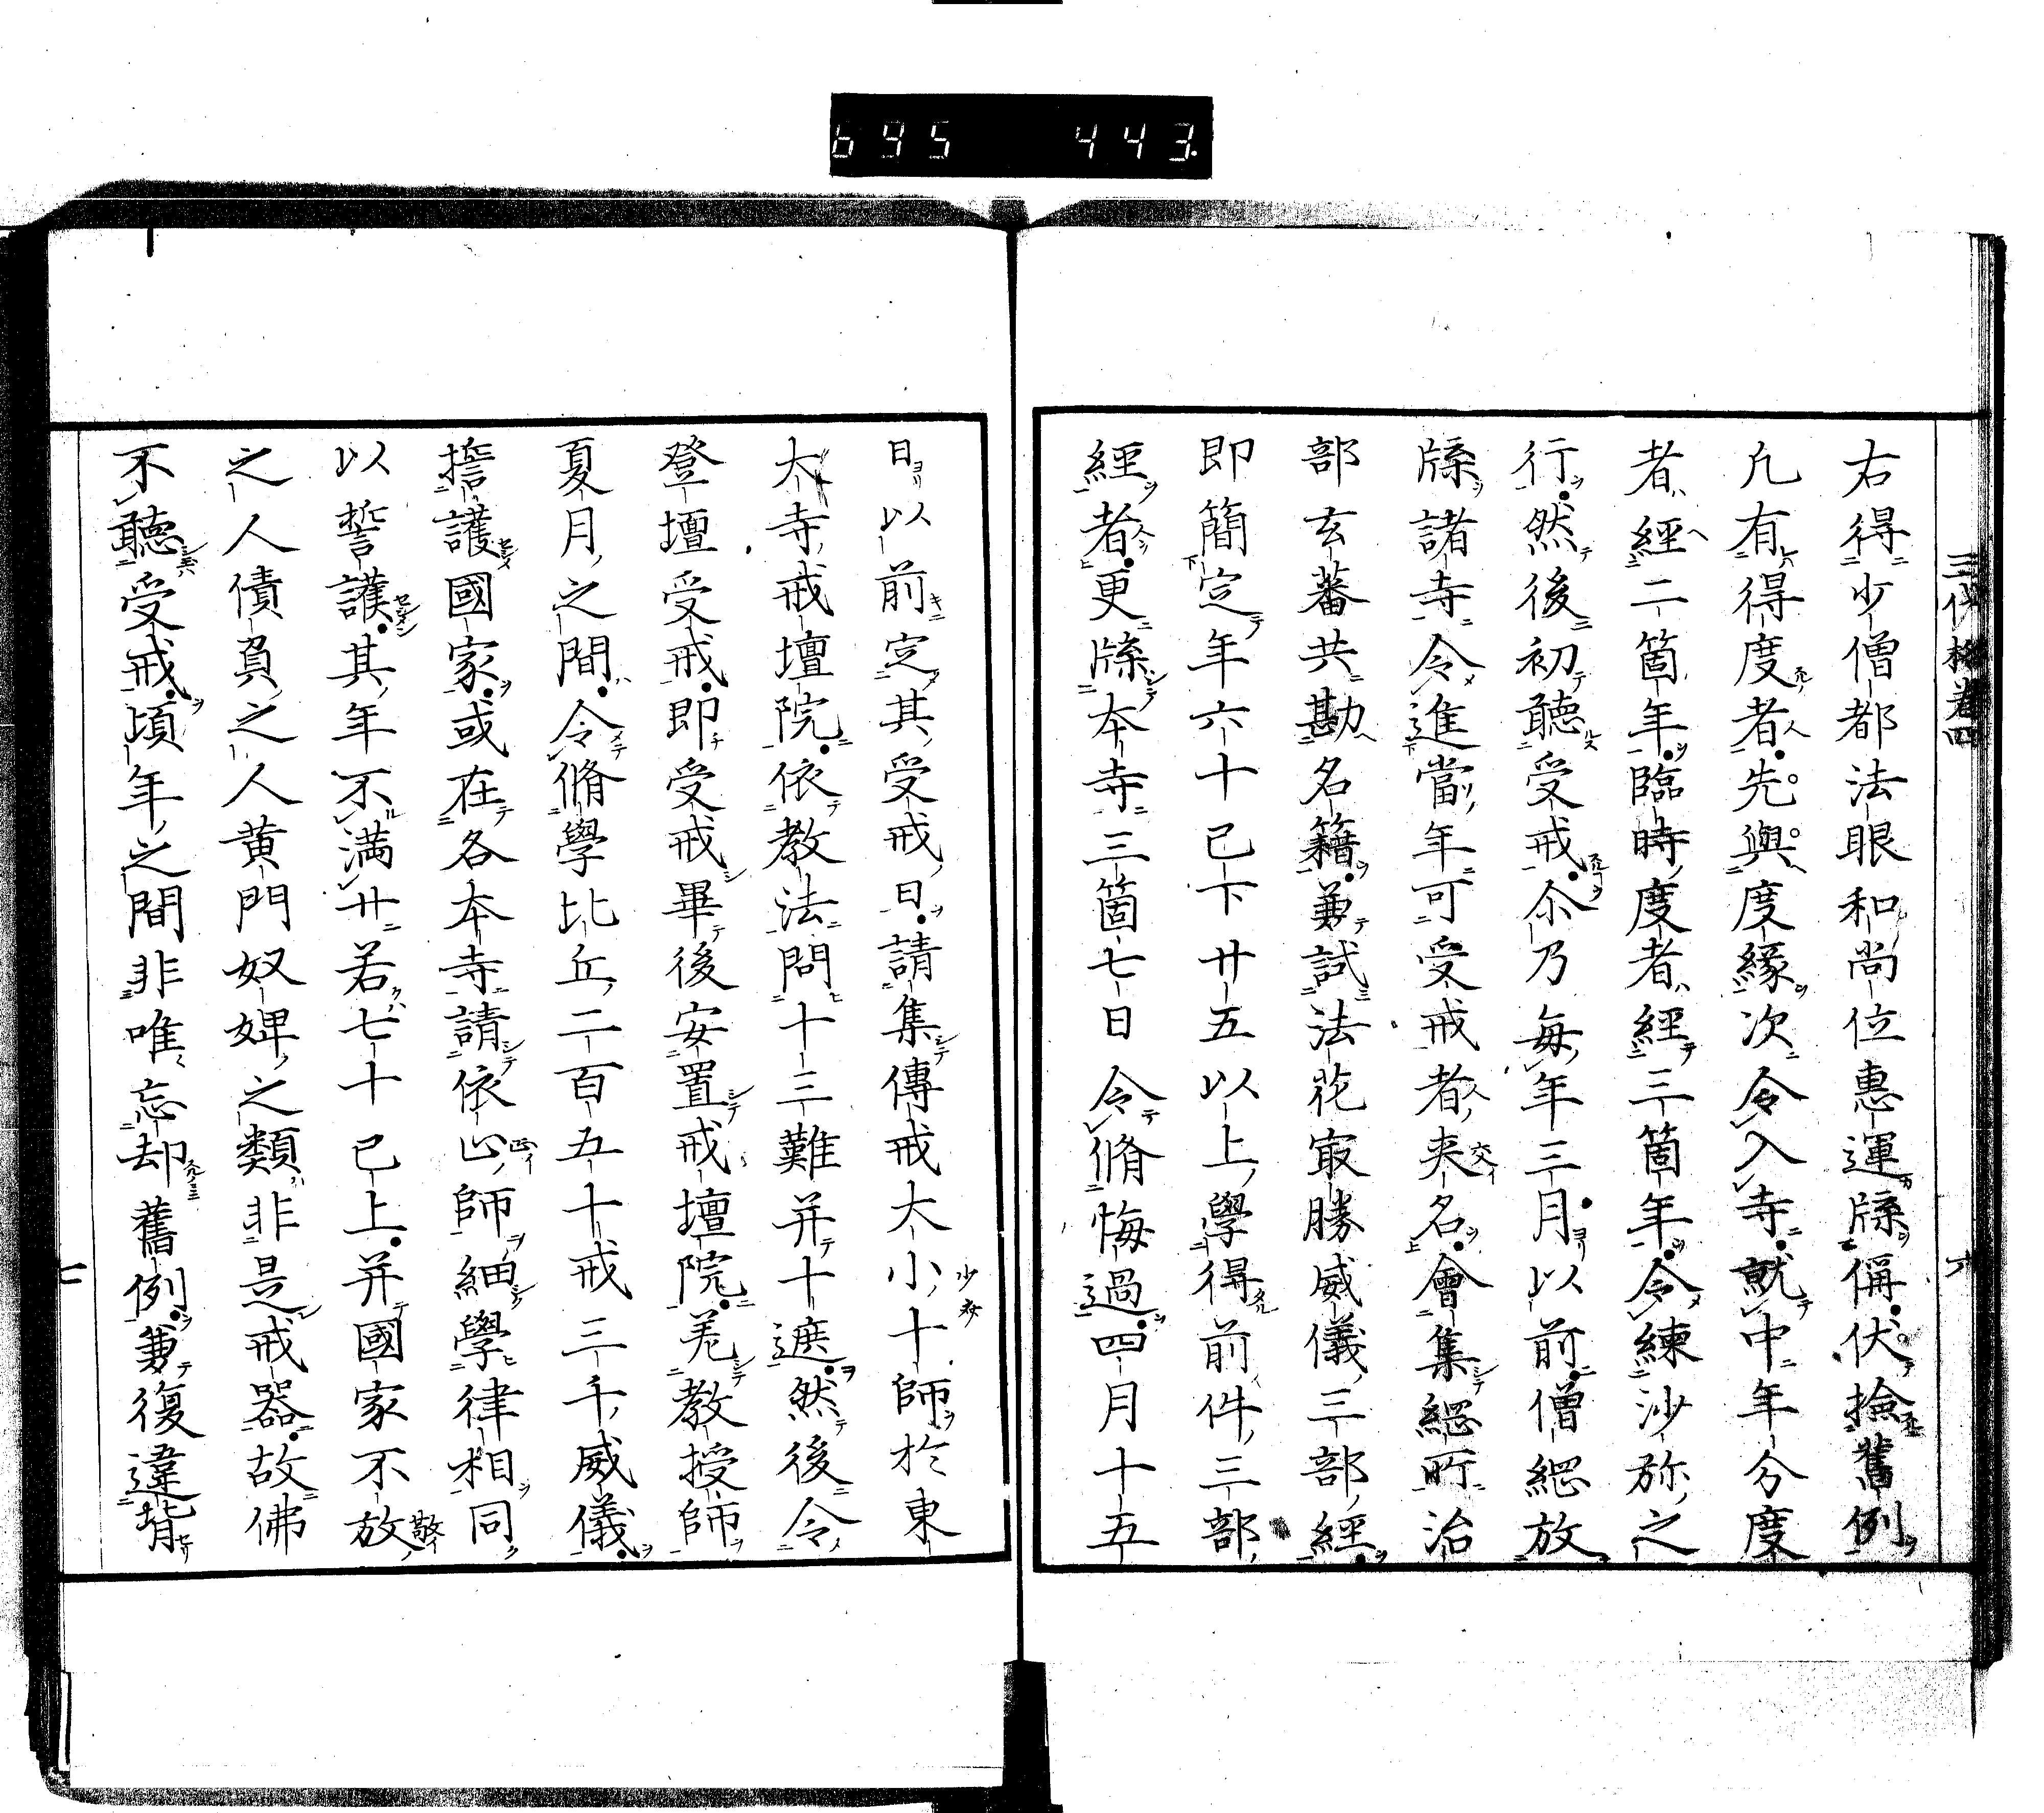 695 443
三代格卷四 六
右得少僧都法眼和尚位惠運牒偁伏撿舊例
凡有得度者先與度緣次令入寺就中年分度
者經二箇年臨時度者經三箇年令練沙弥之
行然後初聽受戒尒乃每年三月以前僧綱放
牒諸寺令進當年可受戒者夾名會集綱所治
部玄蕃共勘名籍兼試法花冣勝威儀三部經
即簡定年六十已下廿五以上學得前件三部
經者更牒本寺三箇七日令脩悔過四月十五
日以前定其受戒日請集傳戒大小十師於東
大寺戒壇院依教法問十三難并十遮然後令
登壇受戒即受戒畢後安置戒壇院羌教授師
夏月之間令脩學比丘二百五十戒三千威儀
擔護國家或在各本寺請依心師細學律相同
以誓護其年不満廿若七十已上并國家不放
之人債負之人黄門奴婢之類非是戒器故佛
不聽受戒頃年之間非唯忘却舊例兼復違背
七